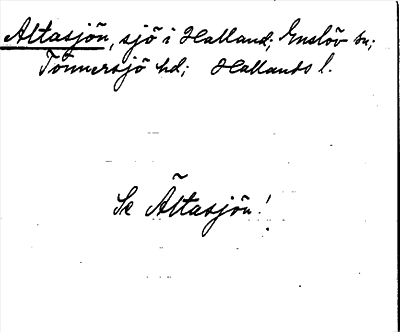 Altasjön, sjö i Halland; Enslöv sn;
Tönnersjö hd; Hallands l.
Se Ältasjön!